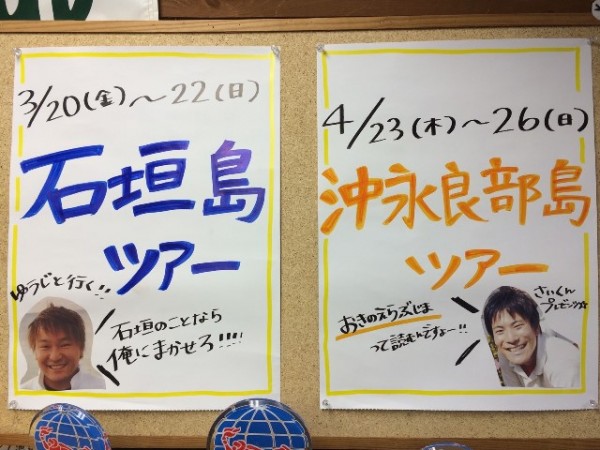 3/20(金)〜22(日)
石垣島
ツアー
ゆうじと行く!!
石垣のことなら
俺にまかせろ!!!!
4/23(木)〜26(日)
沖永良部島
ツアー
さいくん
プレゼンツ☆
おきのえらぶじま
って読むんですよー!!